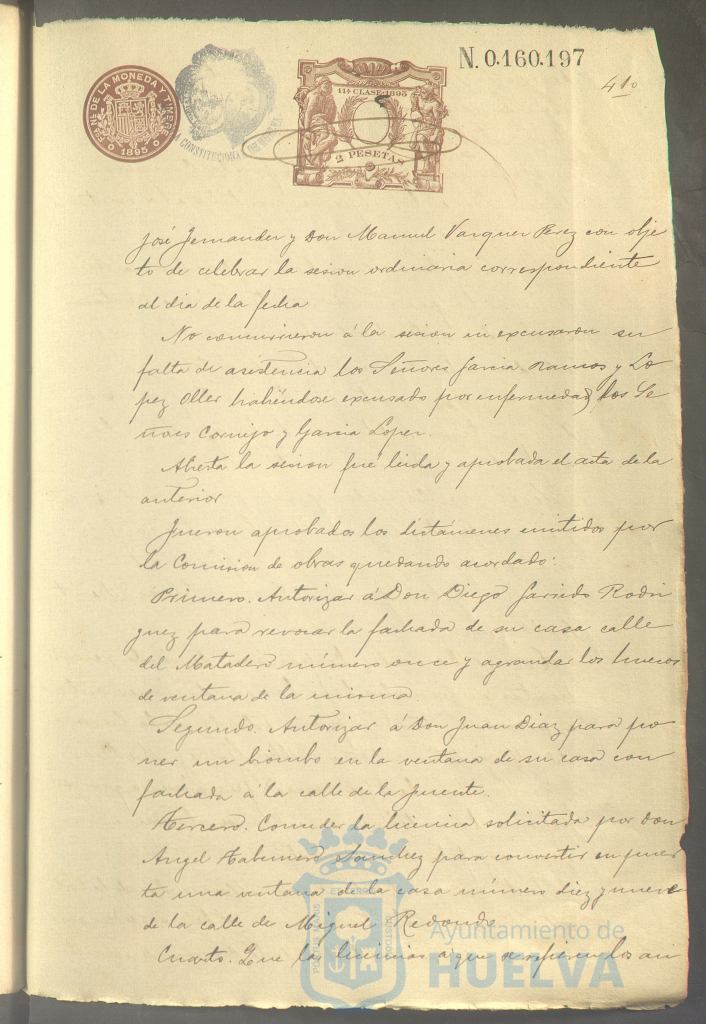 N. 0.160.197
41
Fca. Nal. DE LA MONEDA Y TIMBRE
1895
CONSTITUCIONAL
11ª CLASE·1895
2 PESETAS
José Fernandez y Don Manuel Vazquez Perez con obje
to de celebrar la sesion ordinaria correspondiente
al dia de la fecha
No concurrieron á la sesion ni excusaron su
falta de asistencia los Señores Garcia Ramos y Lo
pez Oller habiéndose excusado por enfermedad los Se
ñores Cornejo y Garcia Lopez.
Abierta la sesion fué leida y aprobada el acta de la
anterior
Fueron aprobados los dictámenes emitidos por
la Comision de obras quedando acordado:
Primero. Autorizar á Don Diego Garrido Rodri
guez para revocar la fachada de su casa calle
del Matadero número once y agrandar los huecos
de ventana de la misma
Segundo. Autorizar á Don Juan Diaz para po
ner un biombo en la ventana de su casa con
fachada á la calle de la Fuente.
Tercero. Conceder la licencia solicitada por Don
Angel Sanchez para convertir en puer
ta una ventana de la casa número diez y nueve
de la calle de Miguel Redondo
Cuarto. Que las licencias á que se refieren los an
Ayuntamiento de
HUELVA